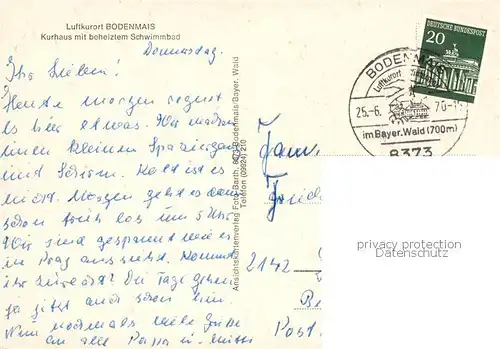 Luftkurort BODENMAIS
Kurhaus mit beheiztem Schwimmbad
Donnerstag.
Ihr Lieben!
Heute morgen regnet
es hier etwas. Wir machen
einen kleinen Spaziergang
und Schirm. Kalt ist es
nicht. Morgen geht es dann
schon früh los um 5 Uhr
Wir sind gespannt wie es
in Prag aussieht. Kommt
ihr zurecht? Die Tage gehen
ja jetzt auch schon hin.
Nun nochmals viele Grüße
an alle Pappa u. Mutti
Ansichtskartenverlag Foto-Barth, 8373 Bodenmais/Bayer. Wald
Telefon (09924) 210
DEUTSCHE BUNDESPOST
20
BODENMAIS
Luftkurort
25.-6. 70-1
im Bayer. Wald (700m)
8373
Fam.
2142
Post
privacy protection
Datenschutz